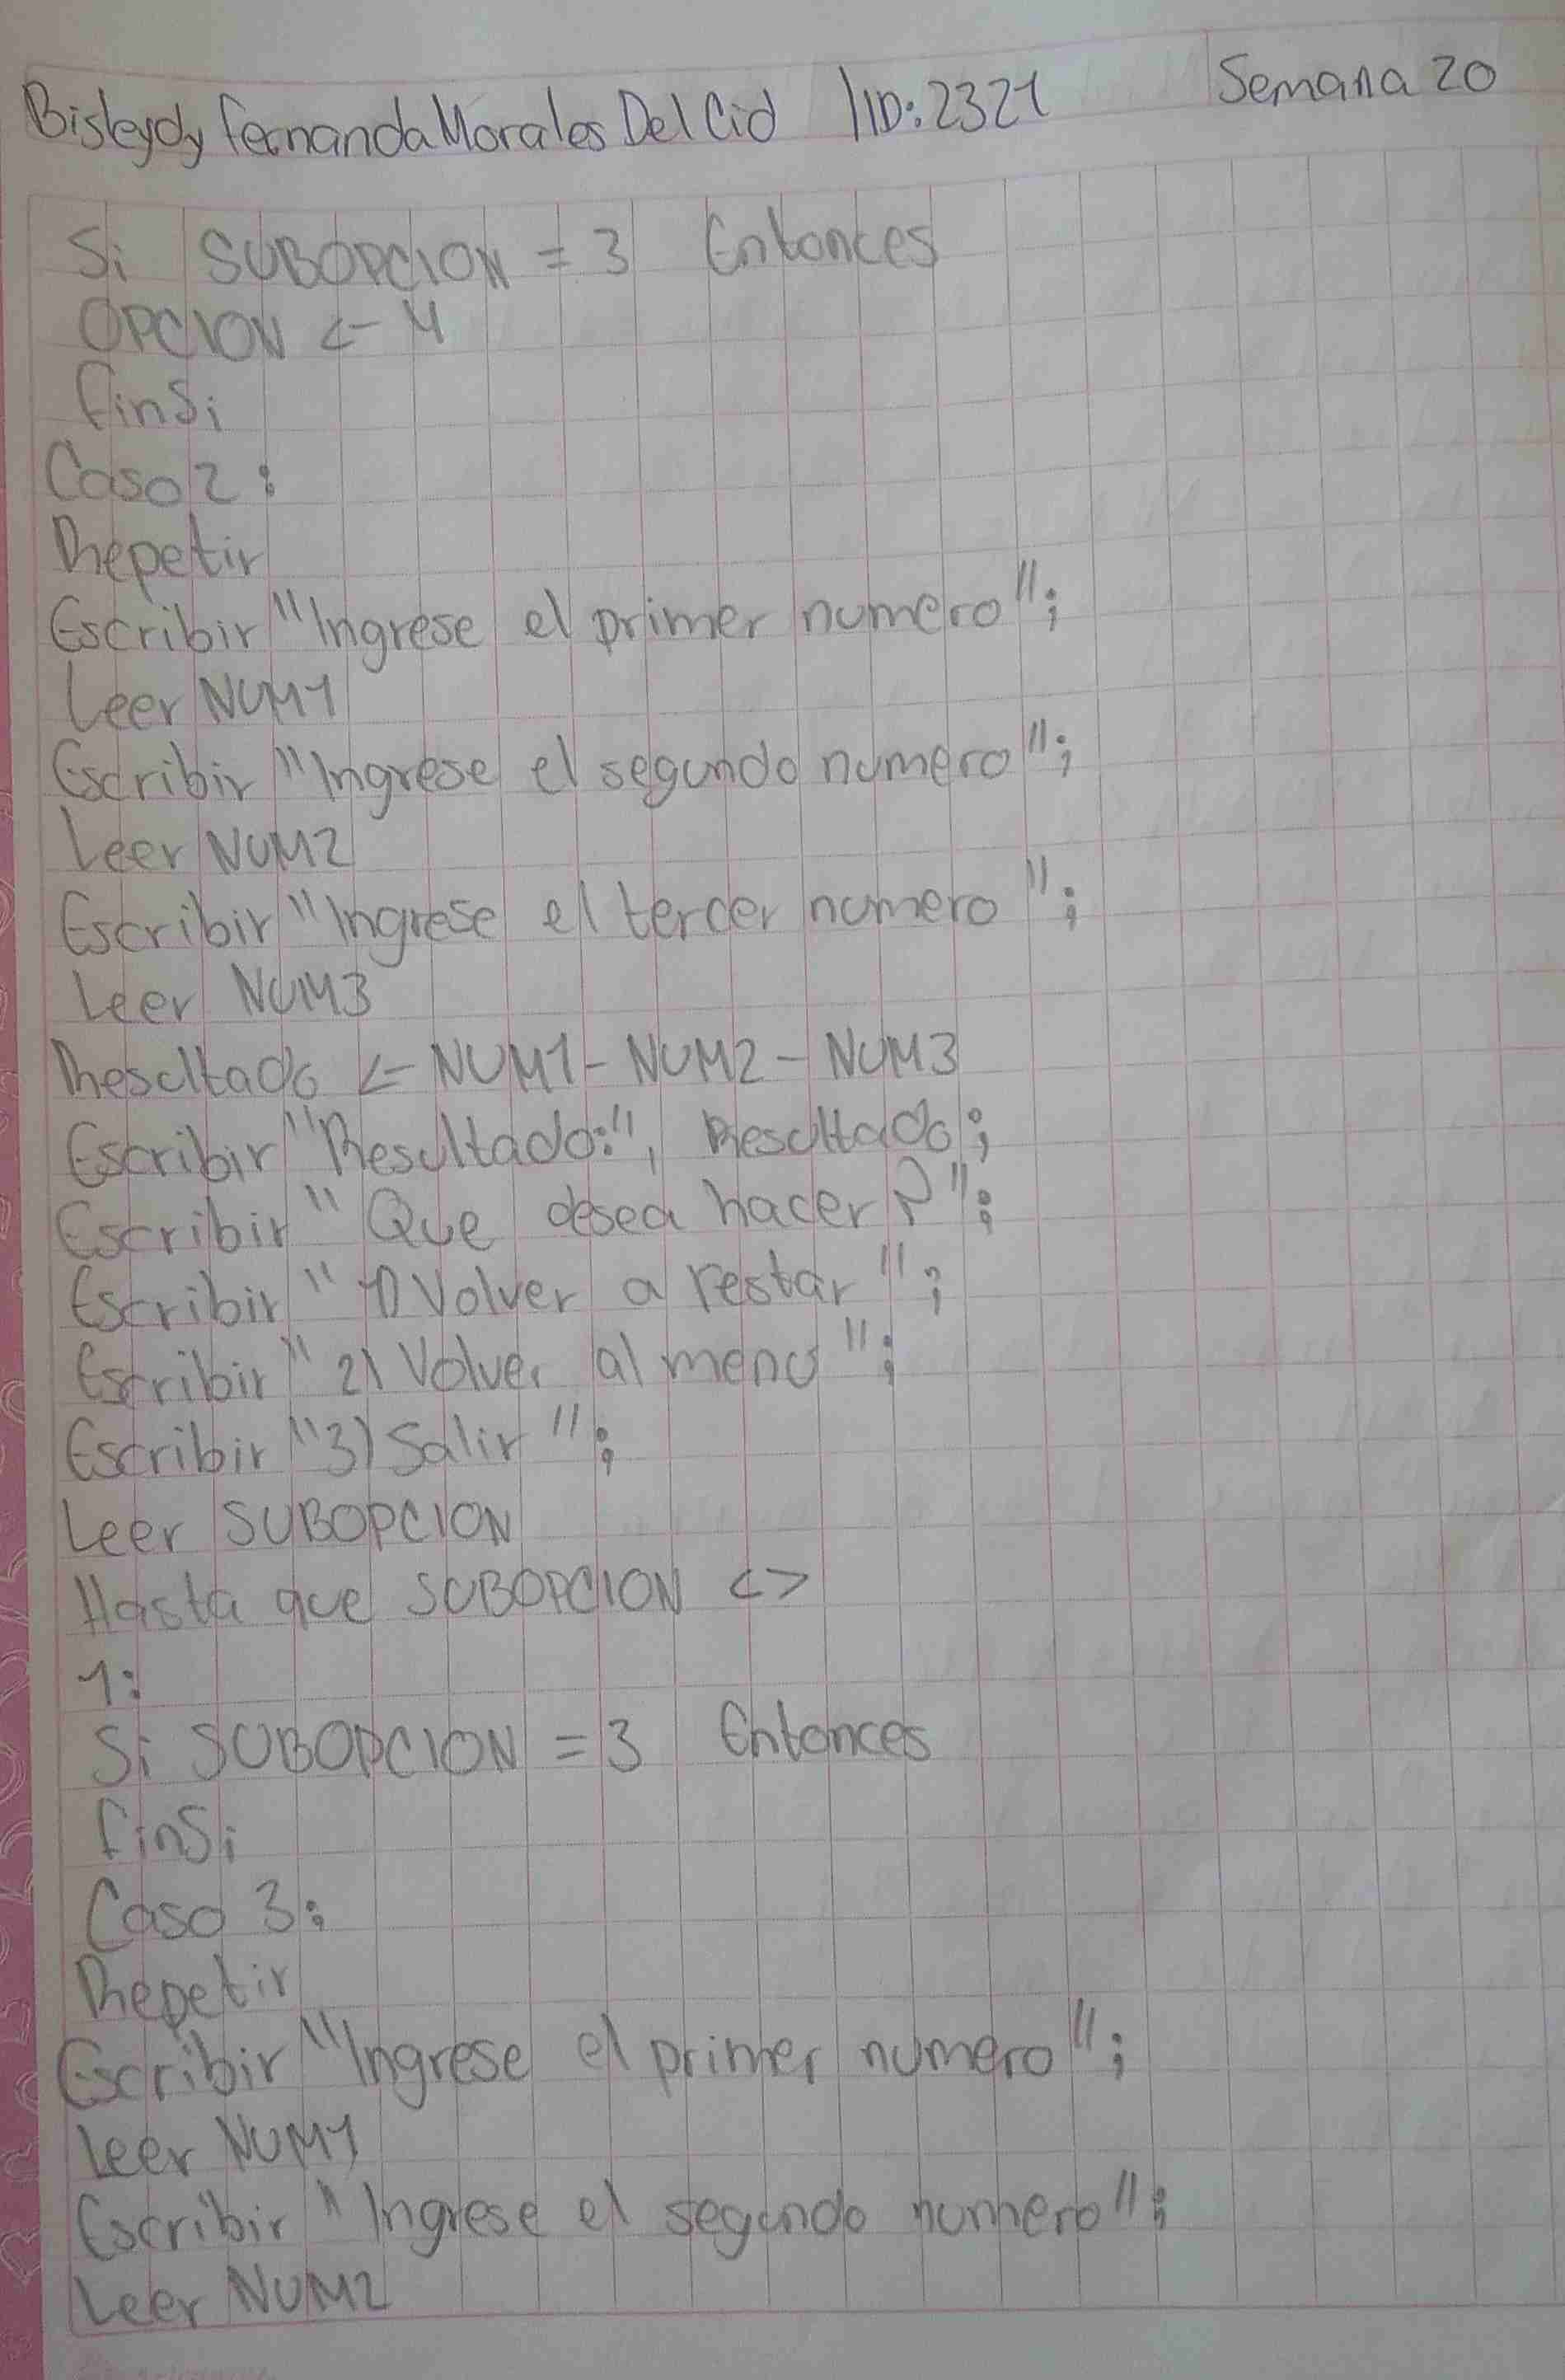 Bisleydy Fernanda Morales Del Cid | ID: 2321 Semana 20
Si SUBOPCION = 3 Entonces
OPCION <- 4
FinSi
Caso 2:
Repetir
Escribir "Ingrese el primer numero";
Leer NUM1
Escribir "Ingrese el segundo numero";
Leer NUM2
Escribir "Ingrese el tercer numero";
Leer NUM3
Resultado <- NUM1 - NUM2 - NUM3
Escribir "Resultado:", Resultado;
Escribir "Que desea hacer?";
Escribir "1) Volver a restar";
Escribir "2) Volver al menu";
Escribir "3) Salir";
Leer SUBOPCION
Hasta que SUBOPCION <>
1:
Si SUBOPCION = 3 Entonces
FinSi
Caso 3:
Repetir
Escribir "Ingrese el primer numero";
Leer NUM1
Escribir "Ingrese el segundo numero";
Leer NUM2